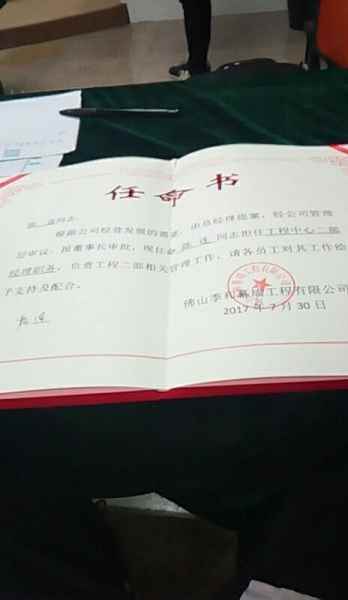 任命书
同志:
根据公司经营发展的需求,由总经理提案,经公司管理
层审议,报董事长审批,现任命 同志担任工程中心二部
经理职务,负责工程二部相关管理工作,请各员工对其工作给
予支持及配合。
佛山季和幕墙工程有限公司
2017年7月30日